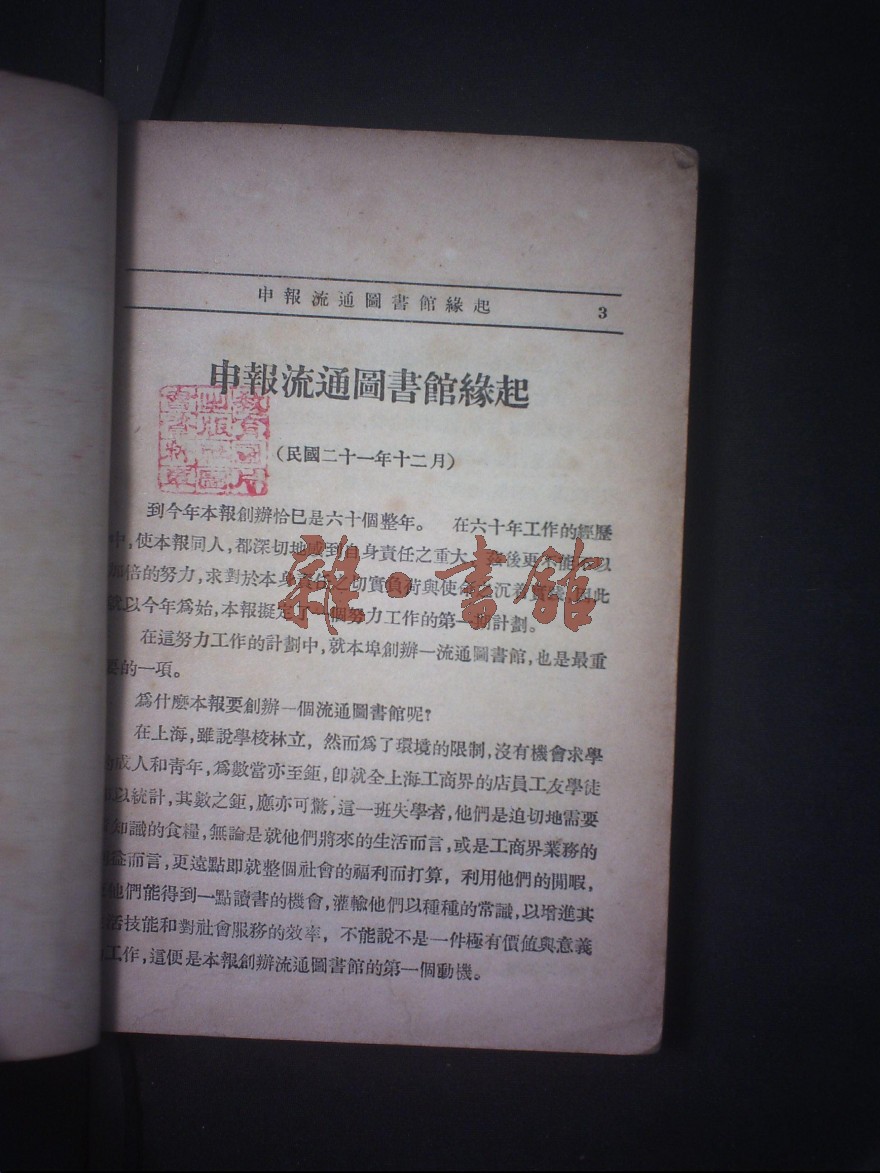 申報流通圖書館緣起 3
申報流通圖書館緣起
(民國二十一年十二月)
到今年本報創辦恰已是六十個整年。 在六十年工作的經歷
中,使本報同人,都深切地感到自身責任之重大,
倍的努力,求對於本身責任之切實負荷與使 因此
以今年爲始,本報擬定了一個努力工作的第一 計劃。
在這努力工作的計劃中,就本埠創辦一流通圖書館,也是最重
的一項。
爲什麼本報要創辦一個流通圖書館呢?
在上海,雖說學校林立, 然而爲了環境的限制,沒有機會求學
成人和靑年,爲數當亦至鉅,卽就全上海工商界的店員工友學徒
以統計,其數之鉅,應亦可驚,這一班失學者,他們是迫切地需要
知識的食糧,無論是就他們將來的生活而言,或是工商界業務的
益而言,更遠點卽就整個社會的福利而打算, 利用他們的閒暇,
他們能得到一點讀書的機會,灌輸他們以種種的常識,以增進其
活技能和對社會服務的效率, 不能說不是一件極有價値與意義
工作,這便是本報創辦流通圖書館的第一個動機。
雜·書館